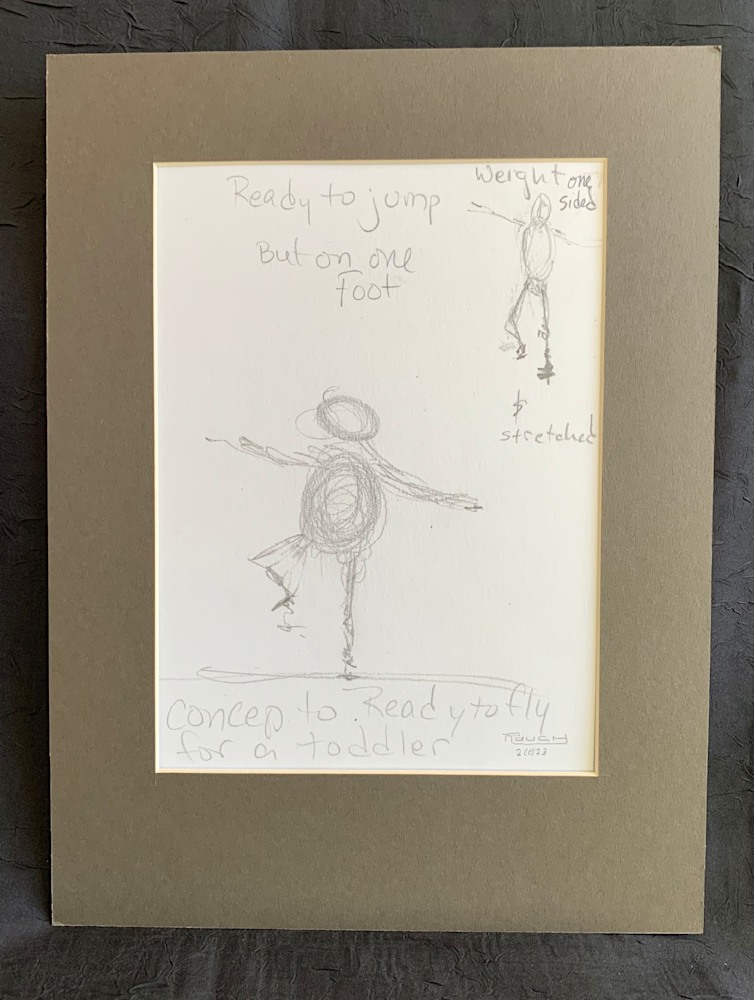 Ready to jump
But on one
foot
Weight one
sided
&
stretched
concep to Ready to fly
for a toddler